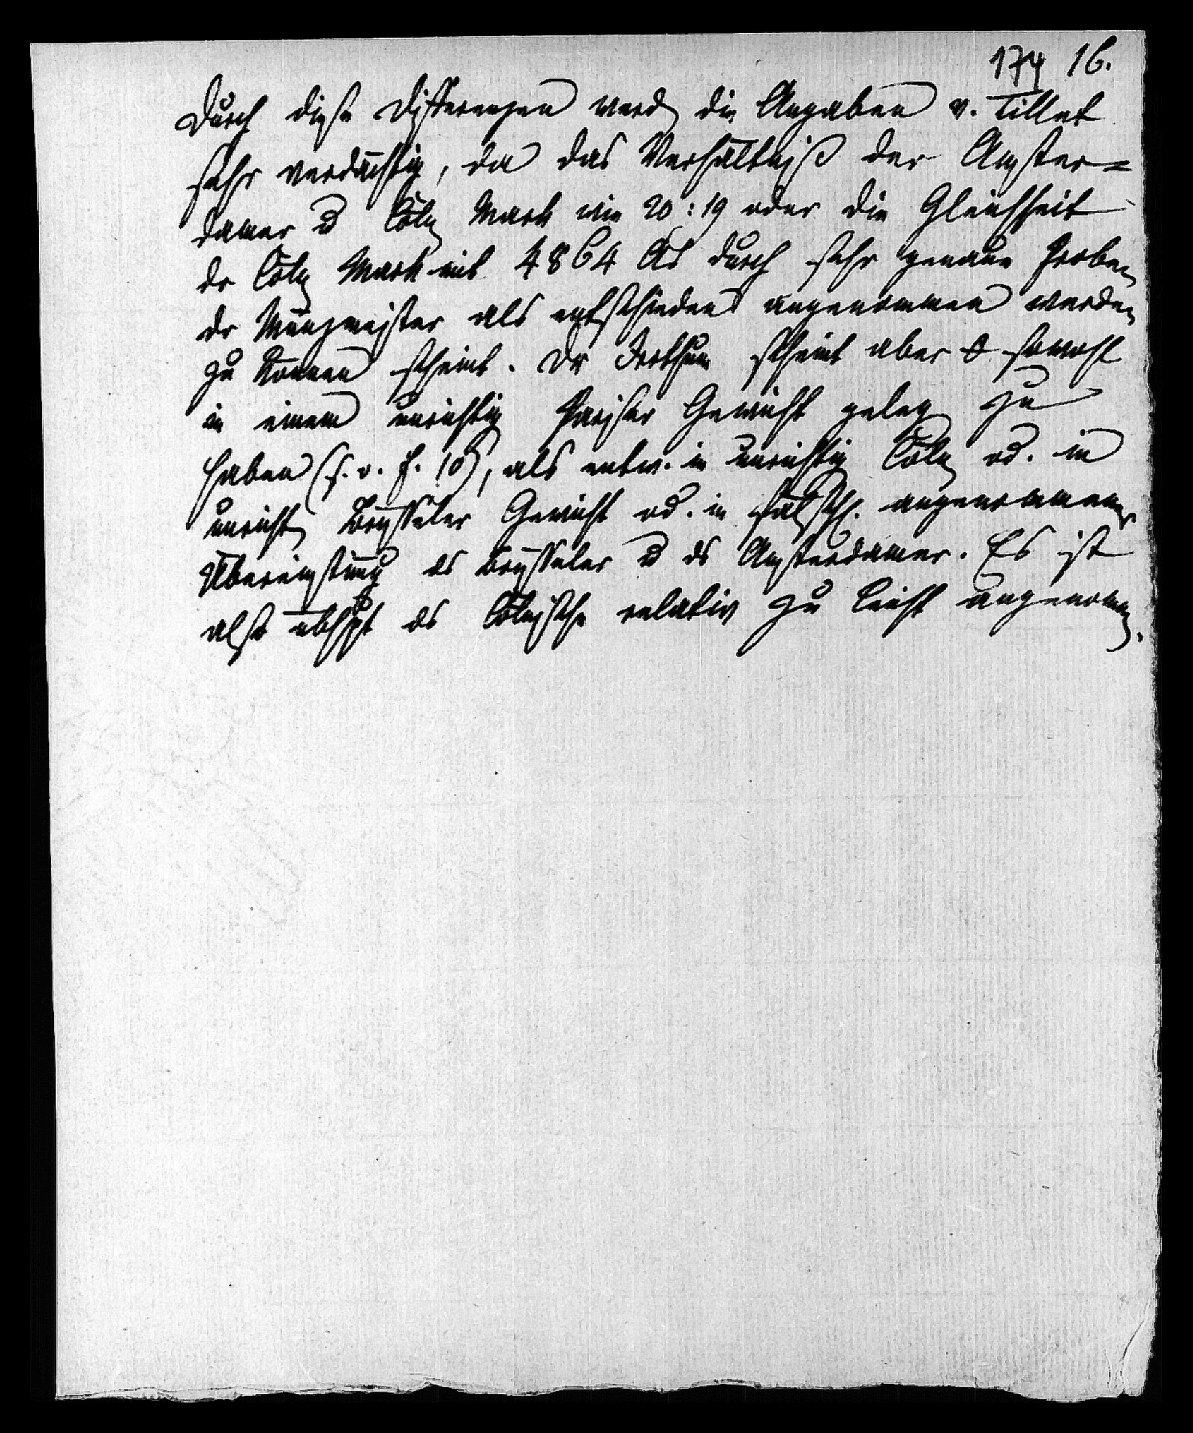 174 16.
Durch diese Differenzen werd die Angaben v. Tillet
sehr verdächtig, da das Verhältniß der Amster=
damer u Cöln Mark wie 20:19 oder die Gleichheit
dr Cöln Mark mit 4864 As durch sehr genaue Proben
dr Münzmeister als entschieden angenommen werden
zu können scheint. Dr Irrthum scheint aber sowohl
in einem unrichtig Pariser Gewicht geleg zu
haben (s. v. S. 10), als entw. in unrichtig Cöln od. in
unricht Brysseler Gewicht od. in fälschl. angenommener
Übereinstimmg ds Brysseler u ds Amsterdamer. Es ist
also ds Cölnische relativ zu leicht angenomm.